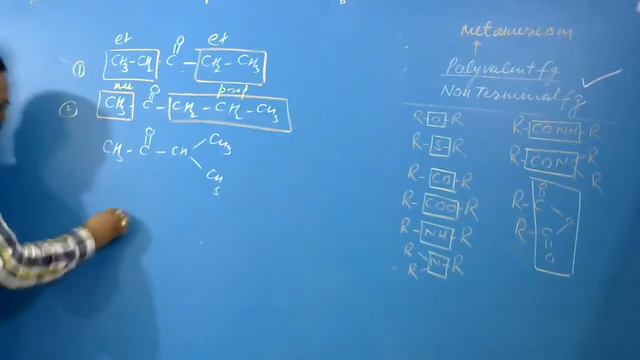 et et
① CH3-CH2 - C - CH2 - CH3
O
me prop
② CH3 - C - CH2 - CH2 - CH3
O
CH3 - C - CH
O
CH3
CH3
metamerism
Polyvalent fg
Non Terminal fg
R-O-R
R-S-R
R-CO-R
R-COO-R
R-NH-R
R
R-N-R
R-CONH-R
R-CON-R
R
O
R-C
O
R-C
O